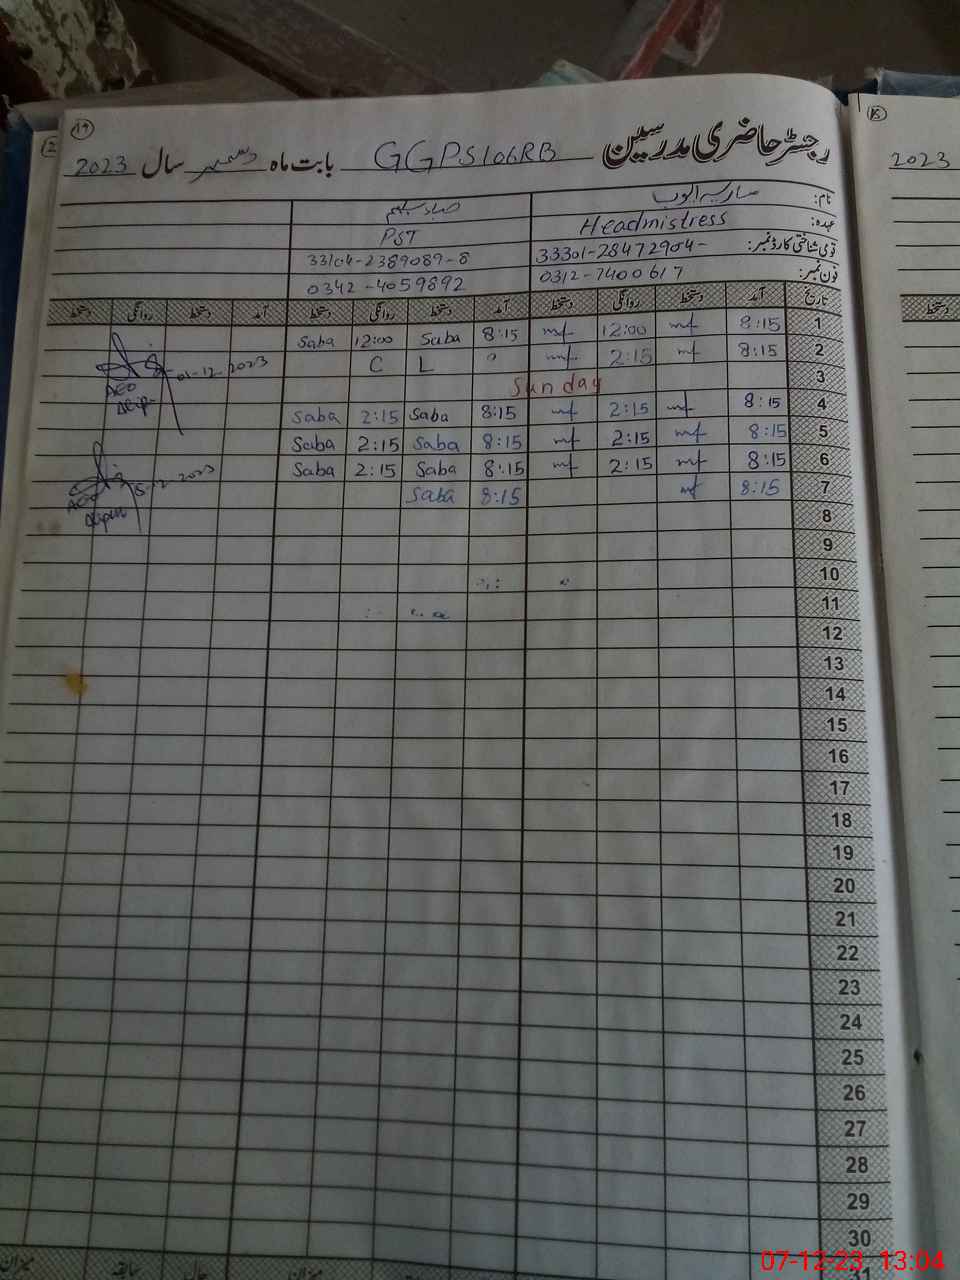 19
رجسٹر حاضری مدرسین GGPS106RB بابت ماہ دسمبر سال 2023
نام: صباء سلیم
عہدہ: Headmistress PST
قومی شناختی کارڈ نمبر: 33301-28472904- 33104-2389089-8
فون نمبر: 0312-7400617 0342-4059892
تاریخ آمد دستخط روانگی دستخط آمد دستخط روانگی دستخط آمد دستخط روانگی دستخط
1 8:15 mf 12:00 mf 8:15 Saba 12:00 Saba
2 8:15 mf 2:15 mf L C
01-12-2023
AEO
3 Sunday
4 8:15 mf 2:15 mf 8:15 Saba 2:15 Saba
5 8:15 mf 2:15 mf 8:15 Saba 2:15 Saba
6 8:15 mf 2:15 mf 8:15 Saba 2:15 Saba
5-12-2023
AEO
7 8:15 mf 8:15 Saba
8
9
10
11
12
13
14
15
16
17
18
19
20
21
22
23
24
25
26
27
28
29
30
31
میزان سابقہ حالیہ میزان
2023
دستخط
07-12-23 13:04